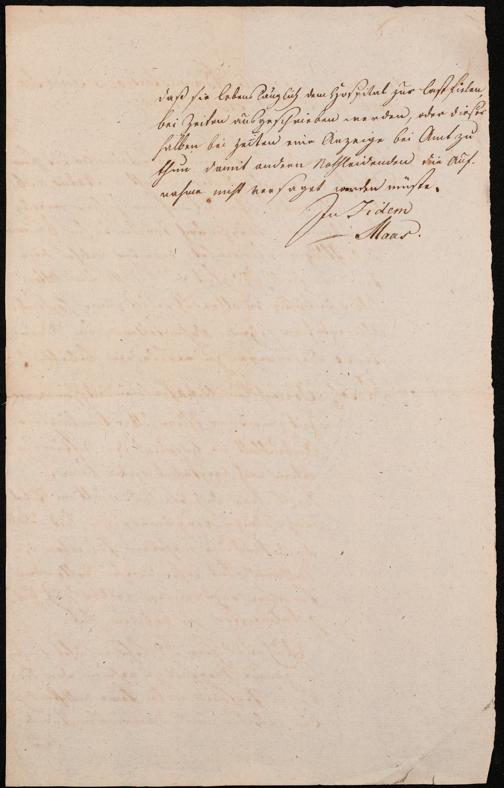 daß sie lebenslänglich dem Hospital zur last fielen,
bei Zeiten ausgeschrieben werden, oder dieser
halben bei zeiten eine Anzeige bei Amt zu
thun, damit andern Nothleidenden die Auf-
nahme nicht versaget werden müste.
In Fidem
Maas.